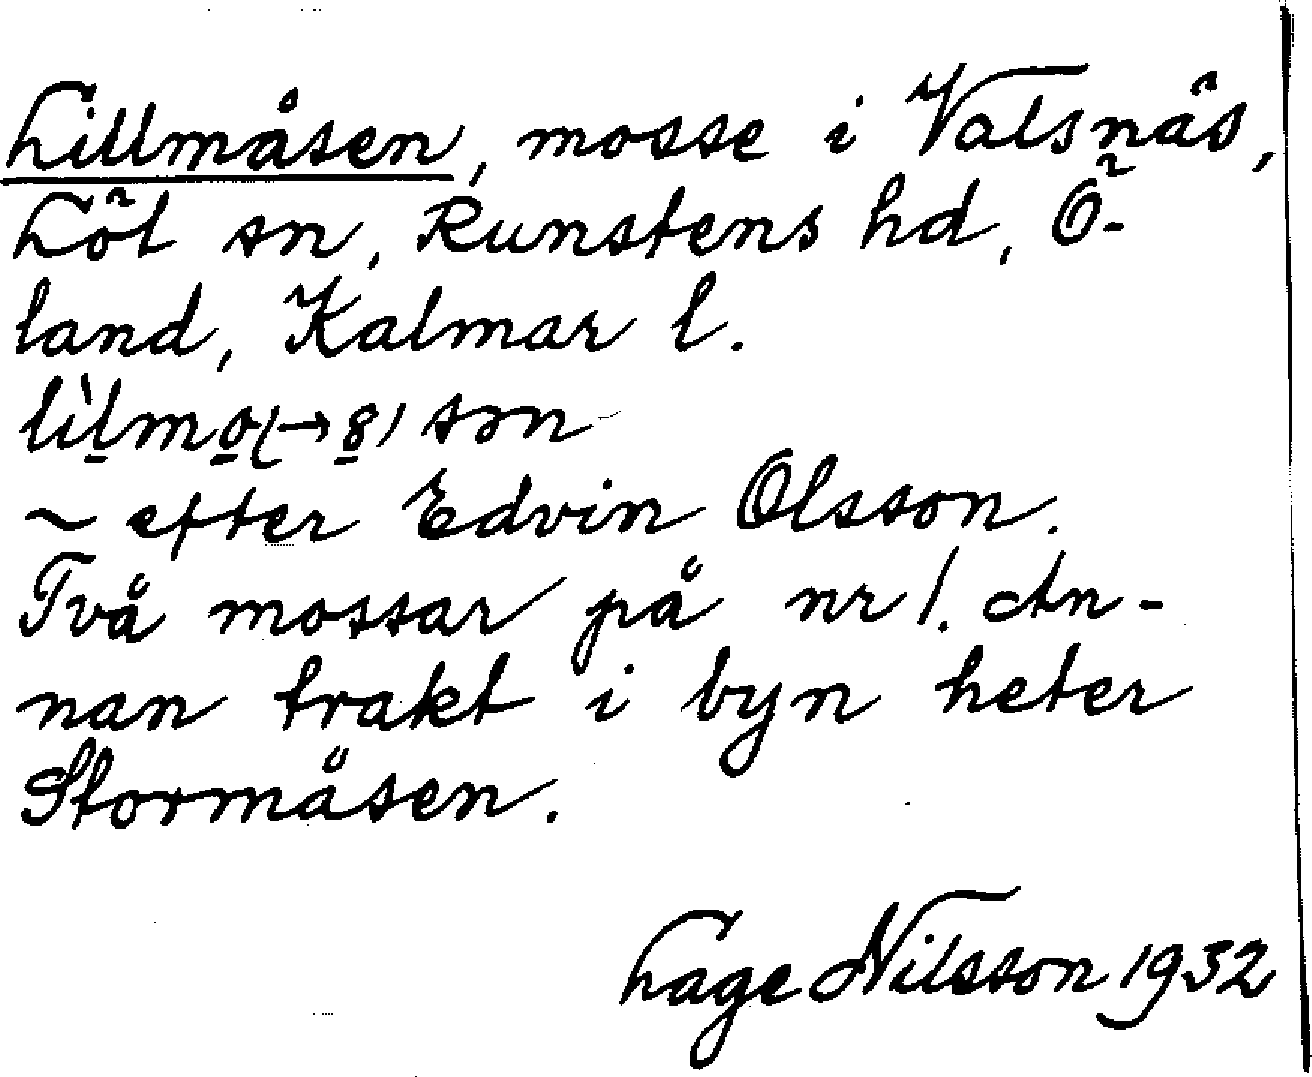 Lillmåsen, mosse i Valsnäs,
Löt sn, Runstens hd, Ö-
land, Kalmar l.
lìlmo̠(→8̠)sən
~ efter Edvin Olsson.
Två mossar på nr 1. An-
nan trakt i byn heter
Stormåsen.
Lage Nilsson 1932